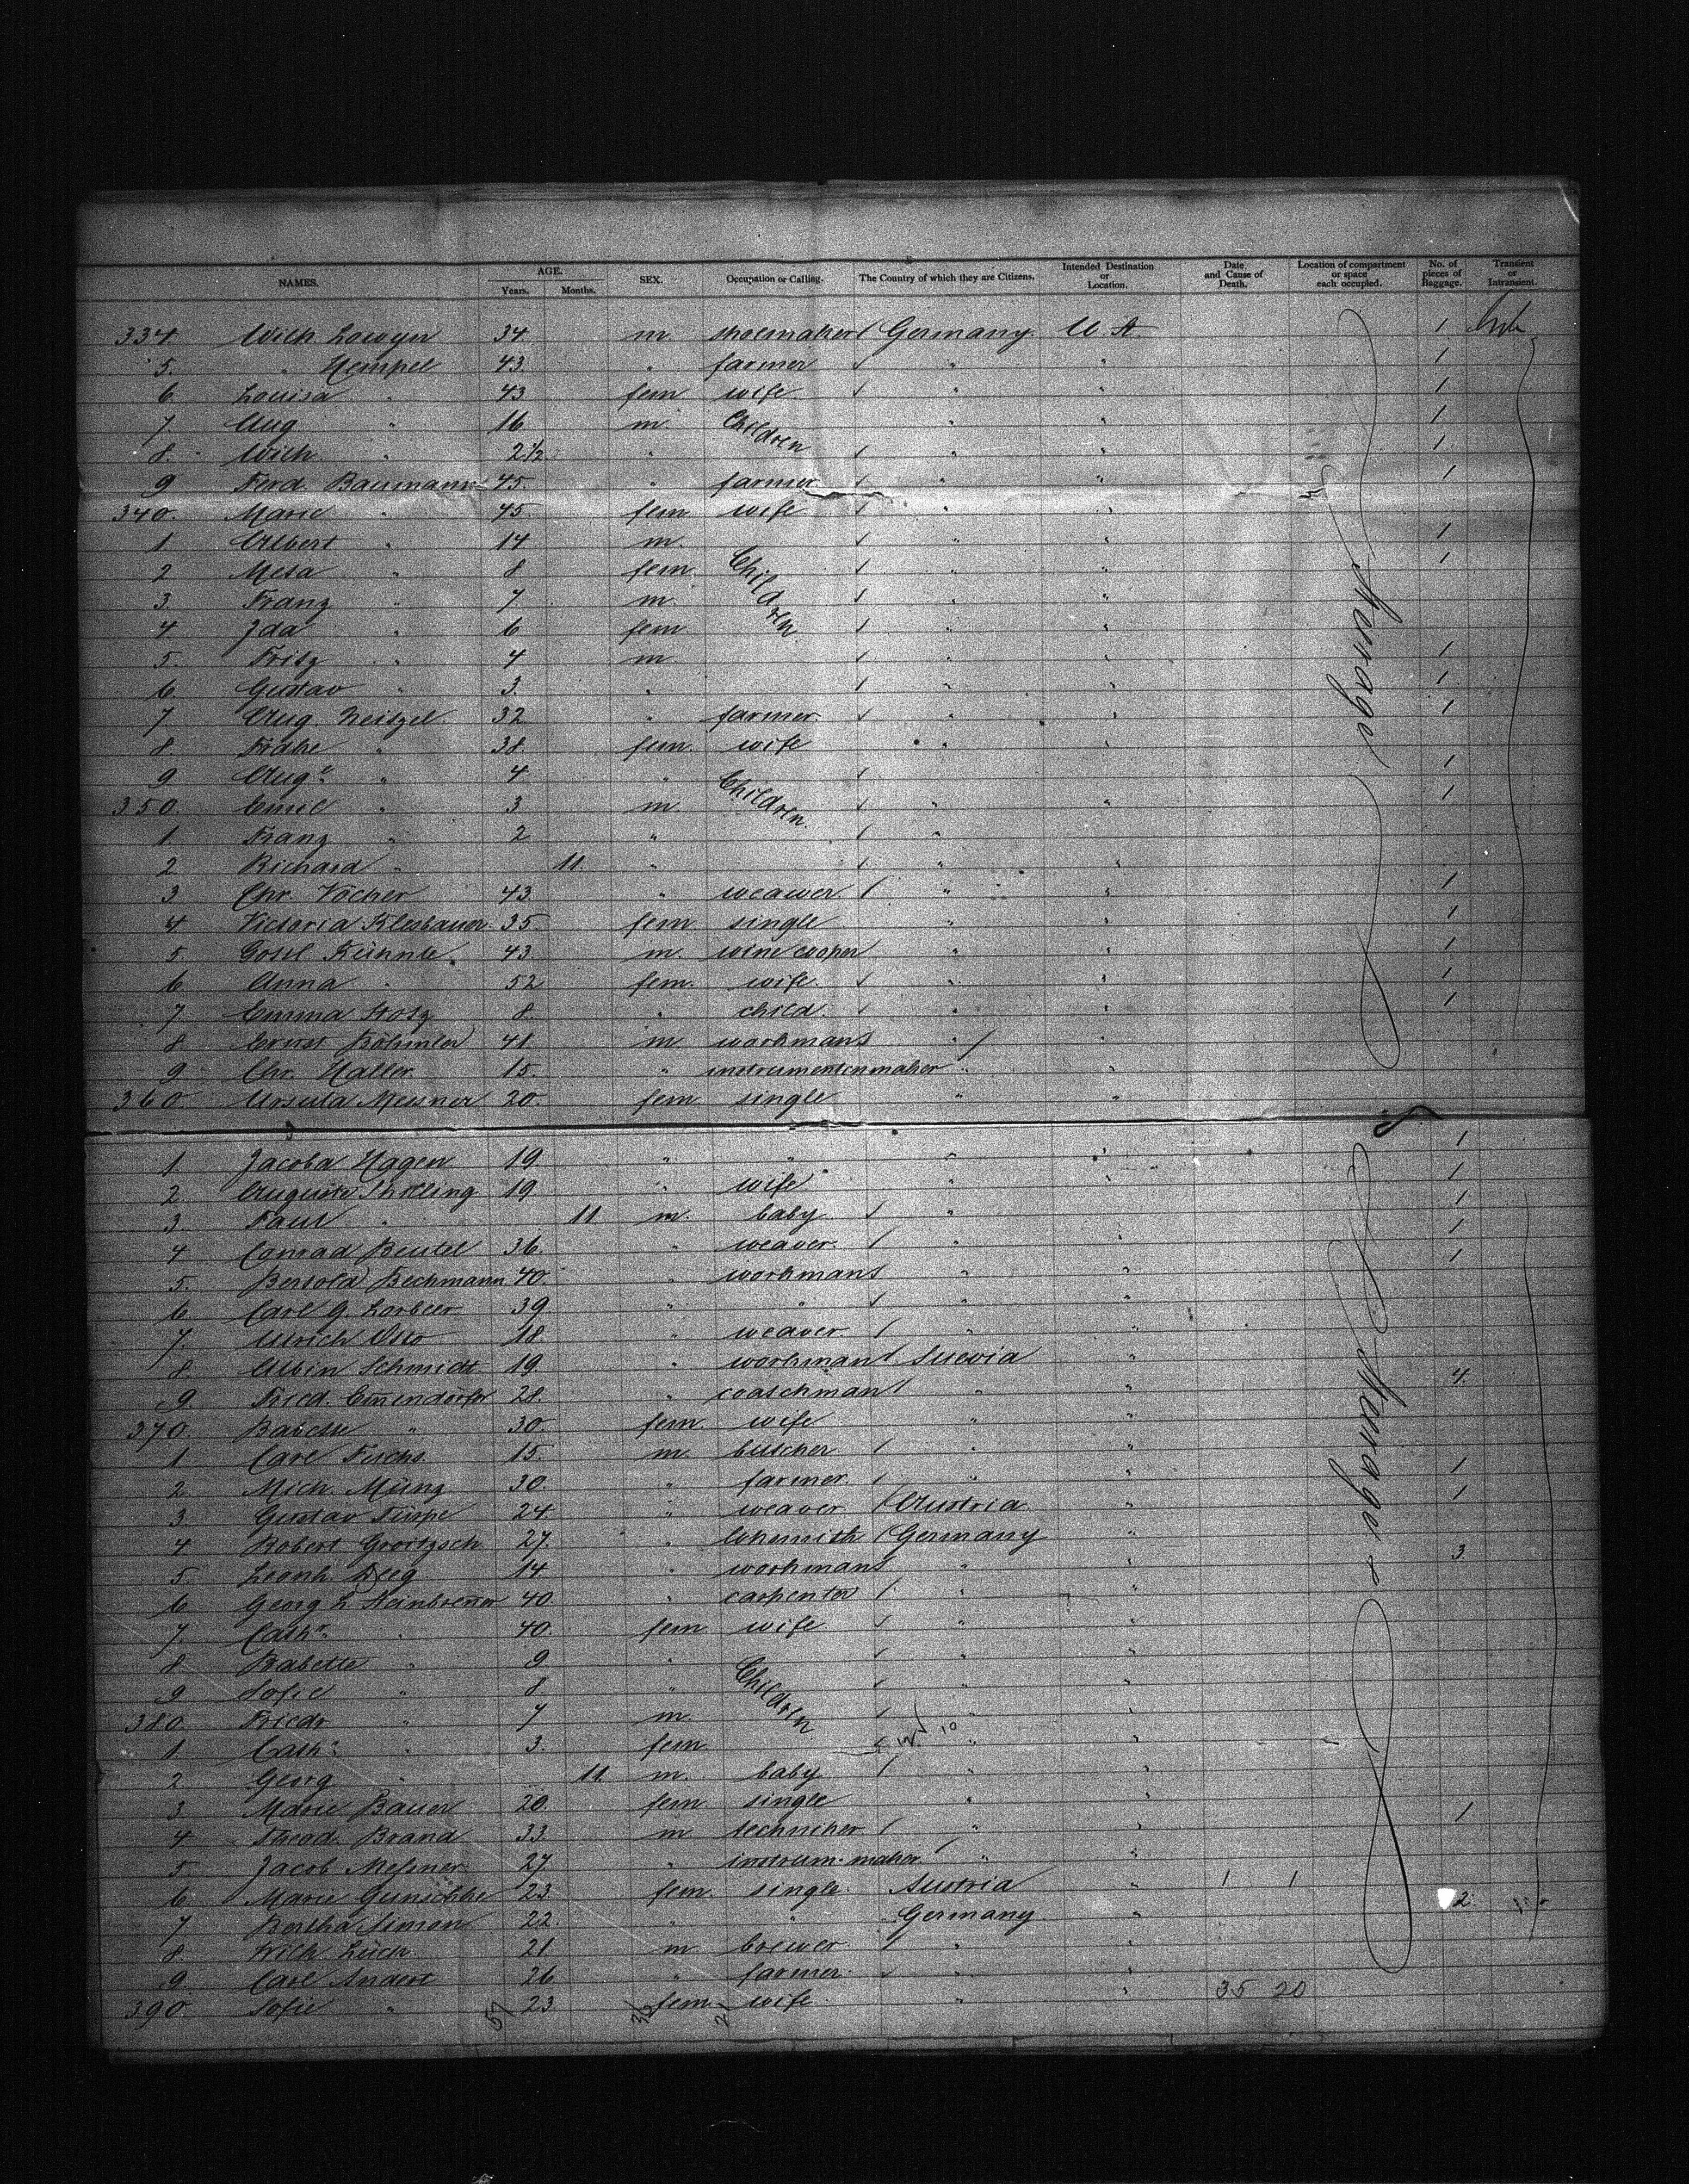 NAMES. AGE. Years. Months. SEX. Occupation or Calling. The Country of which they are Citizens. Intended Destination or Location. Date and Cause of Death. Location of compartment or space each occupied. No. of pieces of Baggage. Transient or Intransient.
334 Wilh 34 m. shoemaker Germany. U St 1
5. " Hempel 43. " farmer " " 1
6 Louisa " 43 fem wife " " 1
7. Aug " 16 m. Children " " 1
8. Wilh. " 2 1/2 " " " 1
9 Ferd. Baumann 45. " farmer " " 1
340. Marie " 45 fem wife " "
1. Albert " 14 m. " " 1
2 Meta " 8 fem. Children " " 1
3. Franz " 7 m. " "
4 Ida " 6 fem " "
5. Fritz " 4 m " " 1
6 Gustav " 3. " " " 1
7 Aug. Neitzel 32 " farmer. " " 1
8. " 38. fem. wife " "
9 Aug.e " 4 " Children 1
350. Emil " 3 m. " " 1
1. Franz " 2 " "
2 Richard " 11. " " "
3 Chr. Vocher 43. " weawer. " " 1
4 Victoria Klesbauer 35. fem single " " 1
5. Gottl. Kühnle 43. m. wine cooper " " 1
6 Anna " 52 fem. wife. " " 1
7 Emma Stotz 8. " child. " " 1
8 Ernst 41. m workman " "
9 Chr. Haller. 15. " instrumentenmaker " "
360. Ursula Messner 20. fem single " "
Steerage
1. Jacoba Hagen 19. " " " " 1
2. Auguste 19 " wife " " 1
3. Paul " 11 m. baby. " 1
4 Conrad Beutel 36. " weaver. " " 1
5. Bertold Bechmann 40. " workman " " 1
6 Carl G. Lorbeer 39 " " " "
7. Ulrich Otto 18. " weaver. " "
8. Albin Schmidt 19. " workman Suevia "
9 Fried. Emendörfer 28. " coatschman " " 4
370. Babette " 30. fem. wife " "
1 Carl Fuchs 15. m. butcher " "
2 Mich. Münz 30. " farmer. " " 1
3 Gustav 24. " weaver Austria " 1
4 Robert Groitzsch 27. " Germany "
5 Leonh. Deeg 14 " workman " " 3
6 Georg L Steinbrenner 40. " carpenter " "
7. Cath.e " 40. fem wife " "
8 Babette " 9 " Children "
9 Sofie " 8 " " "
380. Friedr " 7 m. " "
1 Cath.e " 3. fem " "
2 Georg " 11 m. baby "
3 Marie Bauer 20. fem single " "
4 Theod. Brand 33 m techniker. " " 1
5. Jacob Meßner 27. " instrum. maker " "
6 Marie 23. fem. single. Austria " 1 1
7 Bertha Simon 22. " " Germany " 2
8 Wilh. 21 m brewer " "
9. Carl Andert 26 " farmer. " "
390. Sofie " 23 fem wife " " 35 20
Steerage